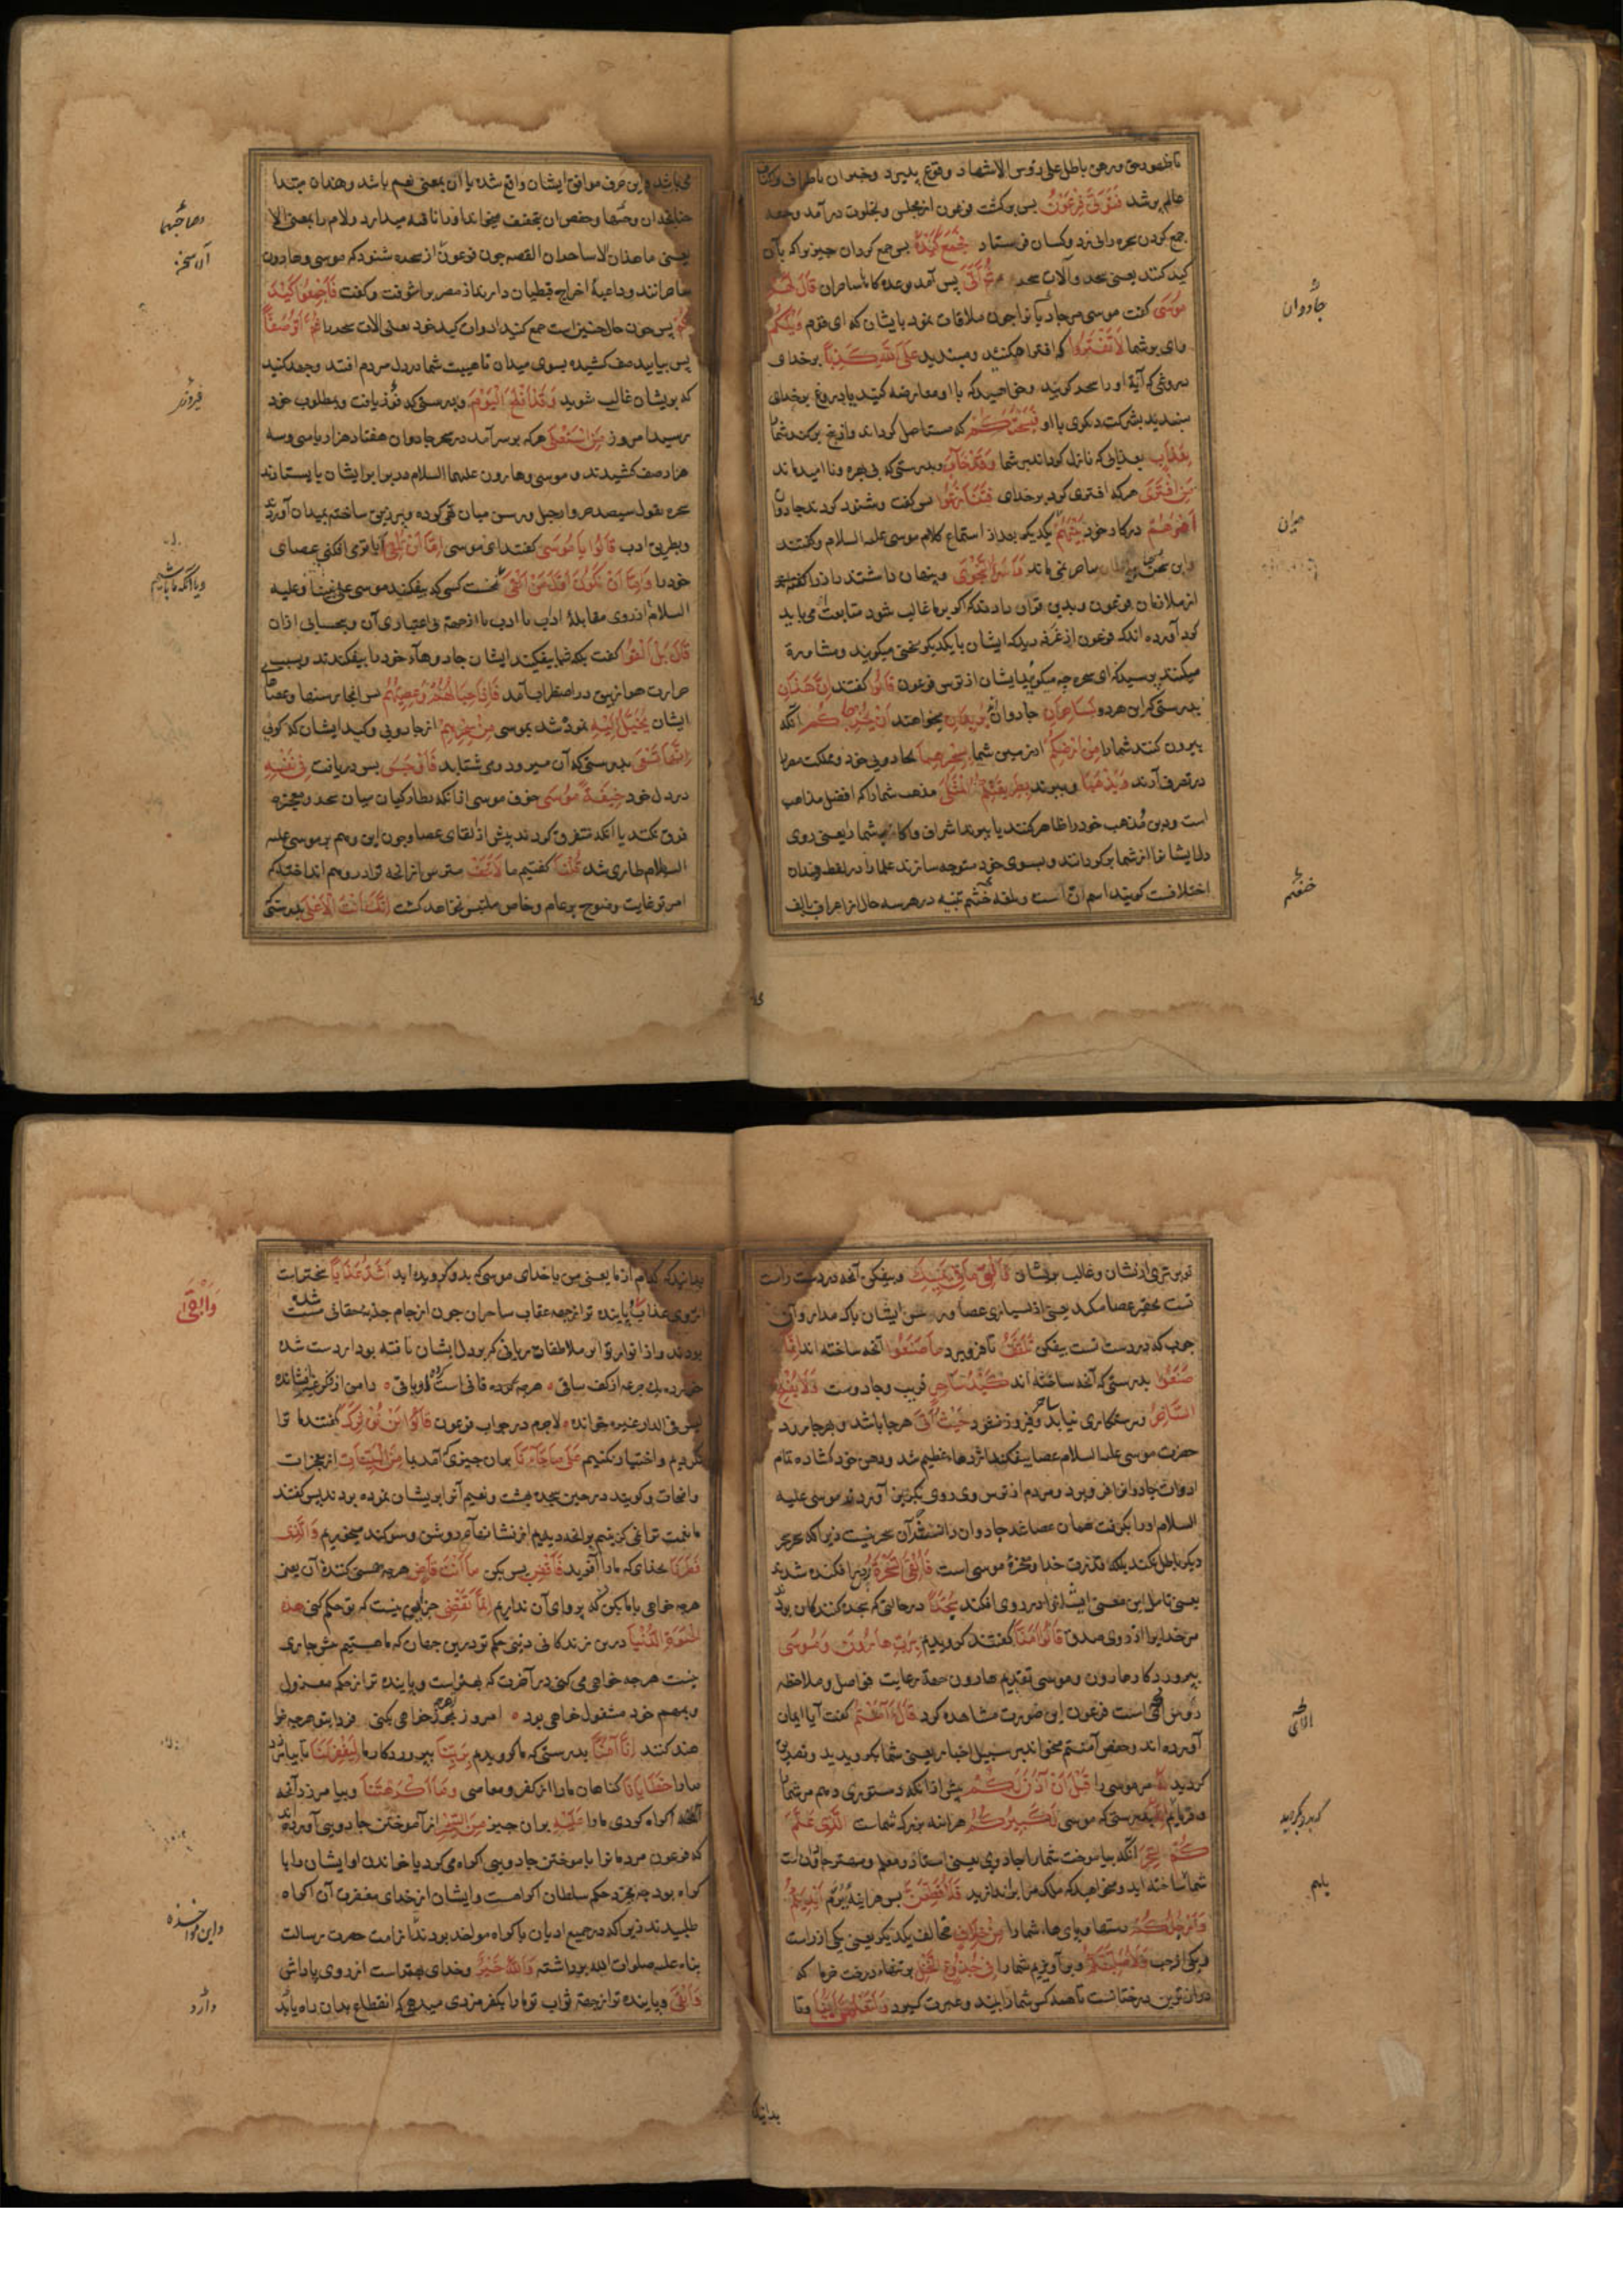 تا ظهور حق و رهن باطل علی رؤس الاشهاد وقوع پذیرد و خبر آن باطراف و
عالم برسد فَتَوَلَّىٰ فِرْعَوْنُ پس برگشت فرعون از مجلس و بخلوت درآمد و
جمع کردن سحره را و کسان فرستاد فَجَمَعَ كَيْدَهُ پس جمع گردان چیزیرا که بآن
کید کنند یعنی سحر و آلات سحر ثُمَّ أَتَىٰ پس آمد بوعده گاه با ساحران قَالَ لَهُمْ
مُوسَىٰ گفت موسی مر جادوانرا چون ملاقات نمود بایشان که ای قوم وَيْلَكُمْ
وای بر شما لَا تَفْتَرُوا که افترا مکنید و مبندید عَلَى اللَّهِ كَذِبًا بر خدای
دروغی که آیة او را سحر گویید و می خواهید که با او معارضه کنید یا دروغ بر خدای
مبندید بشرکت دیگری با او فَيُسْحِتَكُمْ که مستاصل گرداند و از بیخ برکند شما را
بِعَذَابٍ بعذابی که نازل گرداند بر شما وَقَدْ خَابَ و بدرستی که بی بهره و نا امید ماند
مَنِ افْتَرَىٰ هر که افتری کرد بر خدای فَتَنَازَعُوا پس گفت و شنود کردند جادوان
أَمْرَهُمْ در کار خود بَيْنَهُمْ یکدیگر بعد از استماع کلام موسی علیه السلام و گفتند
ساحر نمی ماند وَأَسَرُّوا النَّجْوَىٰ و پنهان داشتند راز را
از ملازمان فرعون و بدین قرار دادند که اگر بر ما غالب شود متابعت می باید
کرد آورده اند که فرعون از غرفه دید که ایشان با یکدیگر سخنی میگویند و مشاورة
میکنند پرسید که ای سحره چه میگویید ایشان از ترس فرعون قَالُوا گفتند إِنْ هَٰذَانِ
بدرستی که این هر دو لَسَاحِرَانِ جادوانند يُرِيدَانِ میخواهند أَنْ يُخْرِجَاكُمْ آنکه
بیرون کنند شما را مِنْ أَرْضِكُمْ از زمین شما بِسِحْرِهِمَا بجادویی خود و مملکت مصر را
در تصرف آرند وَيَذْهَبَا و ببرند بِطَرِيقَتِكُمُ الْمُثْلَىٰ مذهب شما را که افضل مذاهب
است و دین و مذهب خود را ظاهر کنند یا ببرند اشراف و اکابر شما را یعنی روی
دلهای ایشانرا از شما برگردانند و بسوی خود متوجه سازند علما را در لفظ هذان
اختلافست گویند اسم ان است و بلغه خثعم تثنیه در هر سه حال از اعراب بالف
جادوان
میان
خثعم
می باشد و این حرف موافق ایشان واقع شده یا ان بمعنی نعم باشد و هذان مبتدا
و حفص ان بتخفیف میخواند و ان را نافیه میدارد و لام را بمعنی الا
یعنی ما هذان الا ساحران القصه چون فرعون از سحره شنود که موسی و هارون
ساحرانند و داعیۀ اخراج قبطیان دارند از مصر برآشفت و گفت فَأَجْمِعُوا كَيْدَ
كُمْ پس چون حال چنین است جمع کنید ادوات کید خود یعنی آلات سحر را ثُمَّ ائْتُوا صَفًّا
پس بیایید صف کشیده بسوی میدان تا هیبت شما در دل مردم افتد و جهد کنید
که بریشان غالب شوید وَقَدْ أَفْلَحَ الْيَوْمَ و بدرستی که فوز یافت و بمطلوب خود
رسید امروز مَنِ اسْتَعْلَىٰ هر که برسر آمد در سحر جادوان هفتاد هزار یا سی و سه
هزار صف کشیدند و موسی و هارون علیهما السلام در برابر ایشان بایستادند
سحره بقول سیصد خروار حبل و رسن میان تهی کرده و پر زیبق ساخته بمیدان آوردند
و بطریق ادب قَالُوا يَا مُوسَىٰ گفتند ای موسی إِمَّا أَنْ تُلْقِيَ آیا تو می افکنی عصای
خود را وَإِمَّا أَنْ نَكُونَ أَوَّلَ مَنْ أَلْقَىٰ نخست کسی که بیفکند موسی علی نبینا و علیه
السلام از روی مقابلۀ ادب با ادب یا از جهة بی اعتباری آن و بحسابی ازان
قَالَ بَلْ أَلْقُوا گفت بلکه شما بیفکنید ایشان جادویهای خود را بیفکندند و بسبب
حرارت هوا زیبق در اضطراب آمد فَإِذَا حِبَالُهُمْ وَعِصِيُّهُمْ پس آنجا رسنها و عصاها
ایشان يُخَيَّلُ إِلَيْهِ نموده شد بموسی مِنْ سِحْرِهِمْ از جادویی و کید ایشان که گویی
أَنَّهَا تَسْعَىٰ بدرستی که آن میرود و می شتابد فَأَوْجَسَ پس دریافت فِي نَفْسِهِ
در دل خود خِيفَةً مُوسَىٰ خوف موسی از آنکه نظارگیان میان سحر و معجزه
فرق نکنند یا آنکه متفرق گردند پیش از القای عصا و چون این وهم بر موسی علیه
السلام طاری شد قُلْنَا گفتیم ما لَا تَخَفْ مترس ازانچه ترا در وهم انداخته که
امر تو غایت وضوح بر عام و خاص ملتبس نخواهد گشت إِنَّكَ أَنْتَ الْأَعْلَىٰ بدرستی
فیروزی
ویا آنکه ما باشیم
تو برتری ازیشان و غالب بریشان وَأَلْقِ مَا فِي يَمِينِكَ و بیفکن آنچه در دست راست
تست تحقیر عصا میکند یعنی از بسیاری عصا و رسن ایشان باک مدار و آن
چوب که در دست تست بیفکن تَلْقَفْ تا فرو برد مَا صَنَعُوا آنچه ساخته اند إِنَّمَا
صَنَعُوا بدرستی که آنچه ساخته اند كَيْدُ سَاحِرٍ فریب و جادوست وَلَا يُفْلِحُ
السَّاحِرُ و رستگاری نیابد و فیروز نشود حَيْثُ أَتَىٰ هر جا باشد و هر جا رود
حضرت موسی علیه السلام عصا بیفکند اژدهای عظیم شد و دهن خود گشاده تمام
ادوات جادوانرا فرو برد و مردم از ترس وی روی بگریز آوردند موسی علیه
السلام او را بگرفت همان عصا شد جادوان دانستند که آن سحر نیست زیرا که سحر سحر
دیگر باطل نکند بلکه قدرت خدا و معجزۀ موسی است فَأُلْقِيَ السَّحَرَةُ پس افکنده شدند
یعنی تامل این معنی ایشانرا در روی افکند سُجَّدًا در حالتی که سجده کنندگان بودند
مر خدایرا از روی صدق قَالُوا آمَنَّا گفتند گرویدیم بِرَبِّ هَارُونَ وَمُوسَىٰ
بپروردگار هارون و موسی تقدیم هارون جهة رعایت فواصل و ملاحظه
رؤس آی است فرعون این صورت مشاهده کرد قَالَ آمَنْتُمْ گفت آیا ایمان
آورده اند و حفص آمنتم میخواند بر سبیل اخبار یعنی شما بگرویدید و تصدیق
کردید لَهُ مر موسی را قَبْلَ أَنْ آذَنَ لَكُمْ پیش ازانکه دستوری دهم مر شما را
و فرمایم إِنَّهُ بدرستی که موسی لَكَبِيرُكُمُ هر آینه بزرگ شماست الَّذِي عَلَّمَ
كُمُ السِّحْرَ آنکه بیاموخت شما را جادویی یعنی استاذ و معلم و مهتر جادوان است
شما ساخته اید و میخواهید که ملک مرا براندازید فَلَأُقَطِّعَنَّ پس هر آینه ببرم أَيْدِيَكُمْ
وَأَرْجُلَكُمْ دستها و پای های شما را مِنْ خِلَافٍ مخالف یکدیگر یعنی یکی از راست
و یکی از چپ وَلَأُصَلِّبَنَّكُمْ و بر آویزم شما را فِي جُذُوعِ النَّخْلِ بر تنهای درخت خرما که
درازترین درختانست تا همه کس شما را بیند و عبرت گیرد وَلَتَعْلَمُنَّ أَيُّنَا و تا
بدانید
بدانید که کدام از ما یعنی من یا خدای موسی که بدو گرویده اید أَشَدُّ عَذَابًا سختر است
از روی عذاب و پاینده تر از جهة عقاب ساحران چون از جام جذبه حقانی مست شده
بودند و از انوار ملاطفات ربانی که بر دل ایشان تافته بود از دست شده
خورده یک جرعه از کف ساقی هرچه فانیست کرده و باقی دامن از فکر غیر افشانده
لیس فی الدار غیره خوانده لاجرم در جواب فرعون قَالُوا لَنْ نُؤْثِرَكَ گفتند ما ترا
نگزینیم و اختیار نکنیم عَلَىٰ مَا جَاءَنَا بدان چیزی که آمد بما مِنَ الْبَيِّنَاتِ از معجزات
واضحات و گویند در حین سجده بهشت و نعیم آنرا بریشان نموده بودند پس گفتند
ما نعمت ترا نمی گزینیم بر آنچه دیدیم از نشانهای روشن و سوگند میخوریم وَالَّذِي
فَطَرَنَا بخدای که ما را آفرید فَاقْضِ پس بکن مَا أَنْتَ قَاضٍ هرچه هستی کنندۀ آن یعنی
هرچه خواهی با ما بکن که پروای آن نداریم إِنَّمَا تَقْضِي جز این نیست که تو حکم کنی هَٰذِهِ
الْحَيَاةَ الدُّنْيَا درین زندگانی دنیی حکم تو درین جهان که ما هستیم جاری
نیست هرچه خواهی می کنی در آخرت که بهتر است و پاینده تر از حکم معزول
و بمهم خود مشغول خواهی بود امروز هرچه خواهی بکنی فردا بتو هرچه
کنند إِنَّا آمَنَّا بدرستی که ما گرویدیم بِرَبِّنَا بپروردگار ما لِيَغْفِرَ لَنَا تا بیامرزد
ما را خَطَايَانَا گناهان ما را از کفر و معاصی وَمَا أَكْرَهْتَنَا و بیامرزد آنچه
اکراه کردی ما را عَلَيْهِ بران چیز مِنَ السِّحْرِ از آموختن جادویی آورده اند
که فرعون مردمانرا بآموختن جادویی اکراه می کرد یا خواندن او ایشان را با
کراه بود چه بمجرد حکم سلطان اکراهست و ایشان از خدای مغفرت آن اکراه
طلبیدند زیرا که در جمیع ادیان باکراه مواخذ بودند تا زمان حضرت رسالت
پناه علیه صلوات الله برداشته وَاللَّهُ خَيْرٌ و خدای بهتر است از روی پاداش
وَأَبْقَىٰ و پاینده تر از جهة ثواب تو ما را بکفر مزدی میدهی که انقطاع بدان راه یابد
وَأَبْقَىٰ